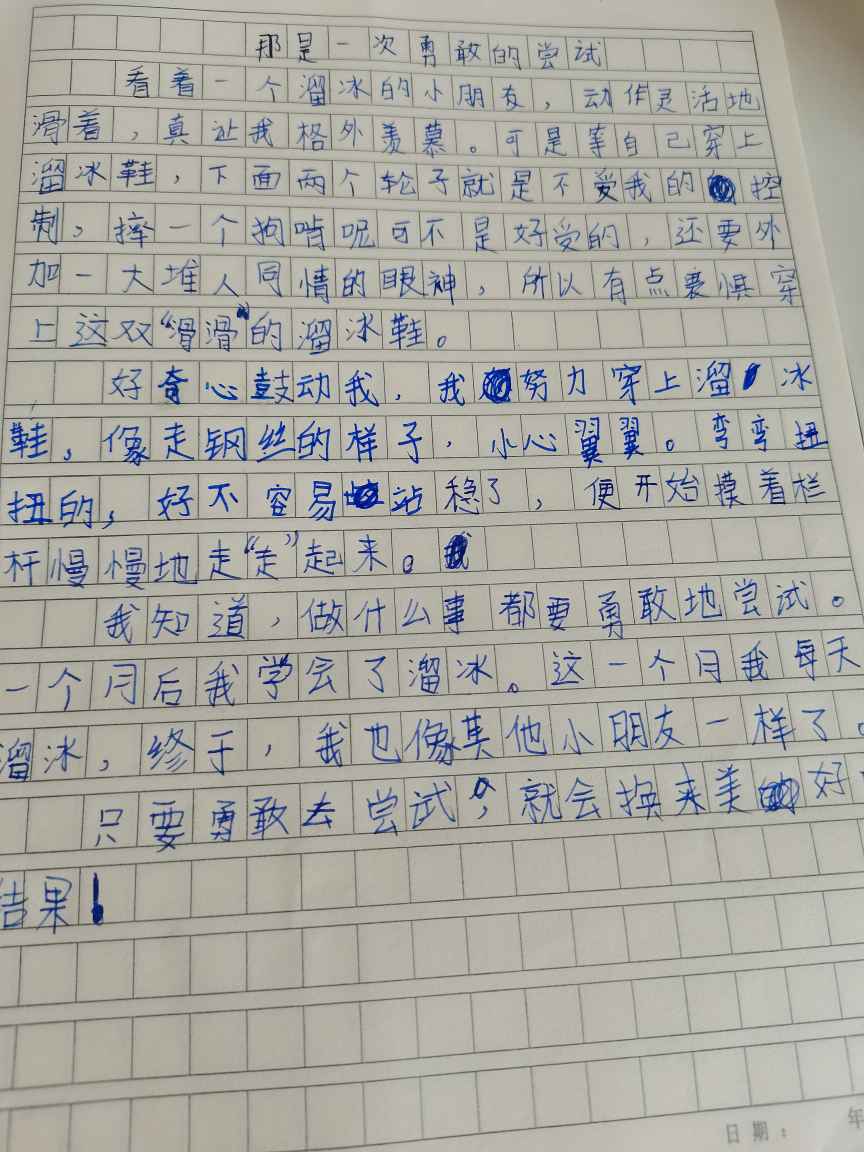 那是一次勇敢的尝试
看着一个溜冰的小朋友，动作灵活地
滑着，真让我格外羡慕。可是等自己穿上
溜冰鞋，下面两个轮子就是不受我的控
制，摔一个狗啃呢可不是好受的，还要外
加一大堆人同情的眼神，所以有点畏惧穿
上这双“滑滑”的溜冰鞋。
好奇心鼓动我，我努力穿上溜冰
鞋，像走钢丝的样子，小心翼翼。弯弯扭
扭的，好不容易站稳了，便开始摸着栏
杆慢慢地走“走”起来。
我知道，做什么事都要勇敢地尝试。
一个月后我学会了溜冰。这一个月我每天
溜冰，终于，我也像其他小朋友一样了。
只要勇敢去尝试，就会换来美好
结果！
日期： 年